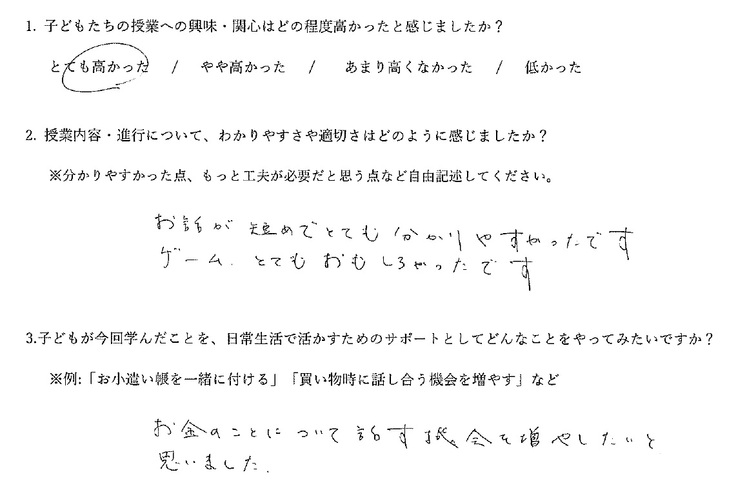 1. 子どもたちの授業への興味・関心はどの程度高かったと感じましたか？
とても高かった / やや高かった / あまり高くなかった / 低かった
2. 授業内容・進行について、わかりやすさや適切さはどのように感じましたか？
※分かりやすかった点、もっと工夫が必要だと思う点など自由記述してください。
お話が短めでとても分かりやすかったです
ゲーム、とてもおもしろかったです
3.子どもが今回学んだことを、日常生活で活かすためのサポートとしてどんなことをやってみたいですか？
※例:「お小遣い帳を一緒に付ける」「買い物時に話し合う機会を増やす」など
お金のことについて話す機会を増やしたいと
思いました.